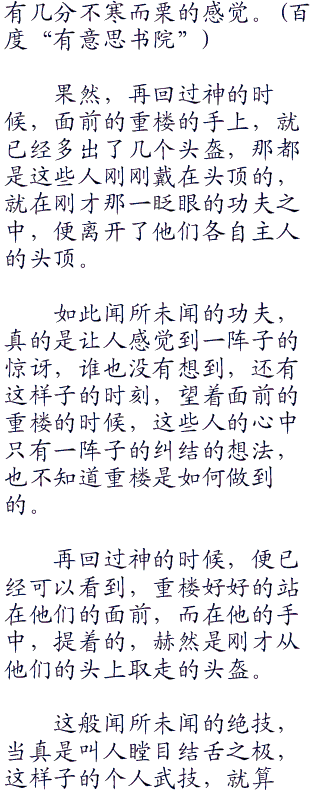 有几分不寒而栗的感觉。（百
度“有意思书院”）
果然，再回过神的时
候，面前的重楼的手上，就
已经多出了几个头盔，那都
是这些人刚刚戴在头顶的，
就在刚才那一眨眼的功夫之
中，便离开了他们各自主人
的头顶。
如此闻所未闻的功夫，
真的是让人感觉到一阵子的
惊讶，谁也没有想到，还有
这样子的时刻，望着面前的
重楼的时候，这些人的心中
只有一阵子的纠结的想法，
也不知道重楼是如何做到
的。
再回过神的时候，便已
经可以看到，重楼好好的站
在他们的面前，而在他的手
中，提着的，赫然是刚才从
他们的头上取走的头盔。
这般闻所未闻的绝技，
当真是叫人瞠目结舌之极，
这样子的个人武技，就算